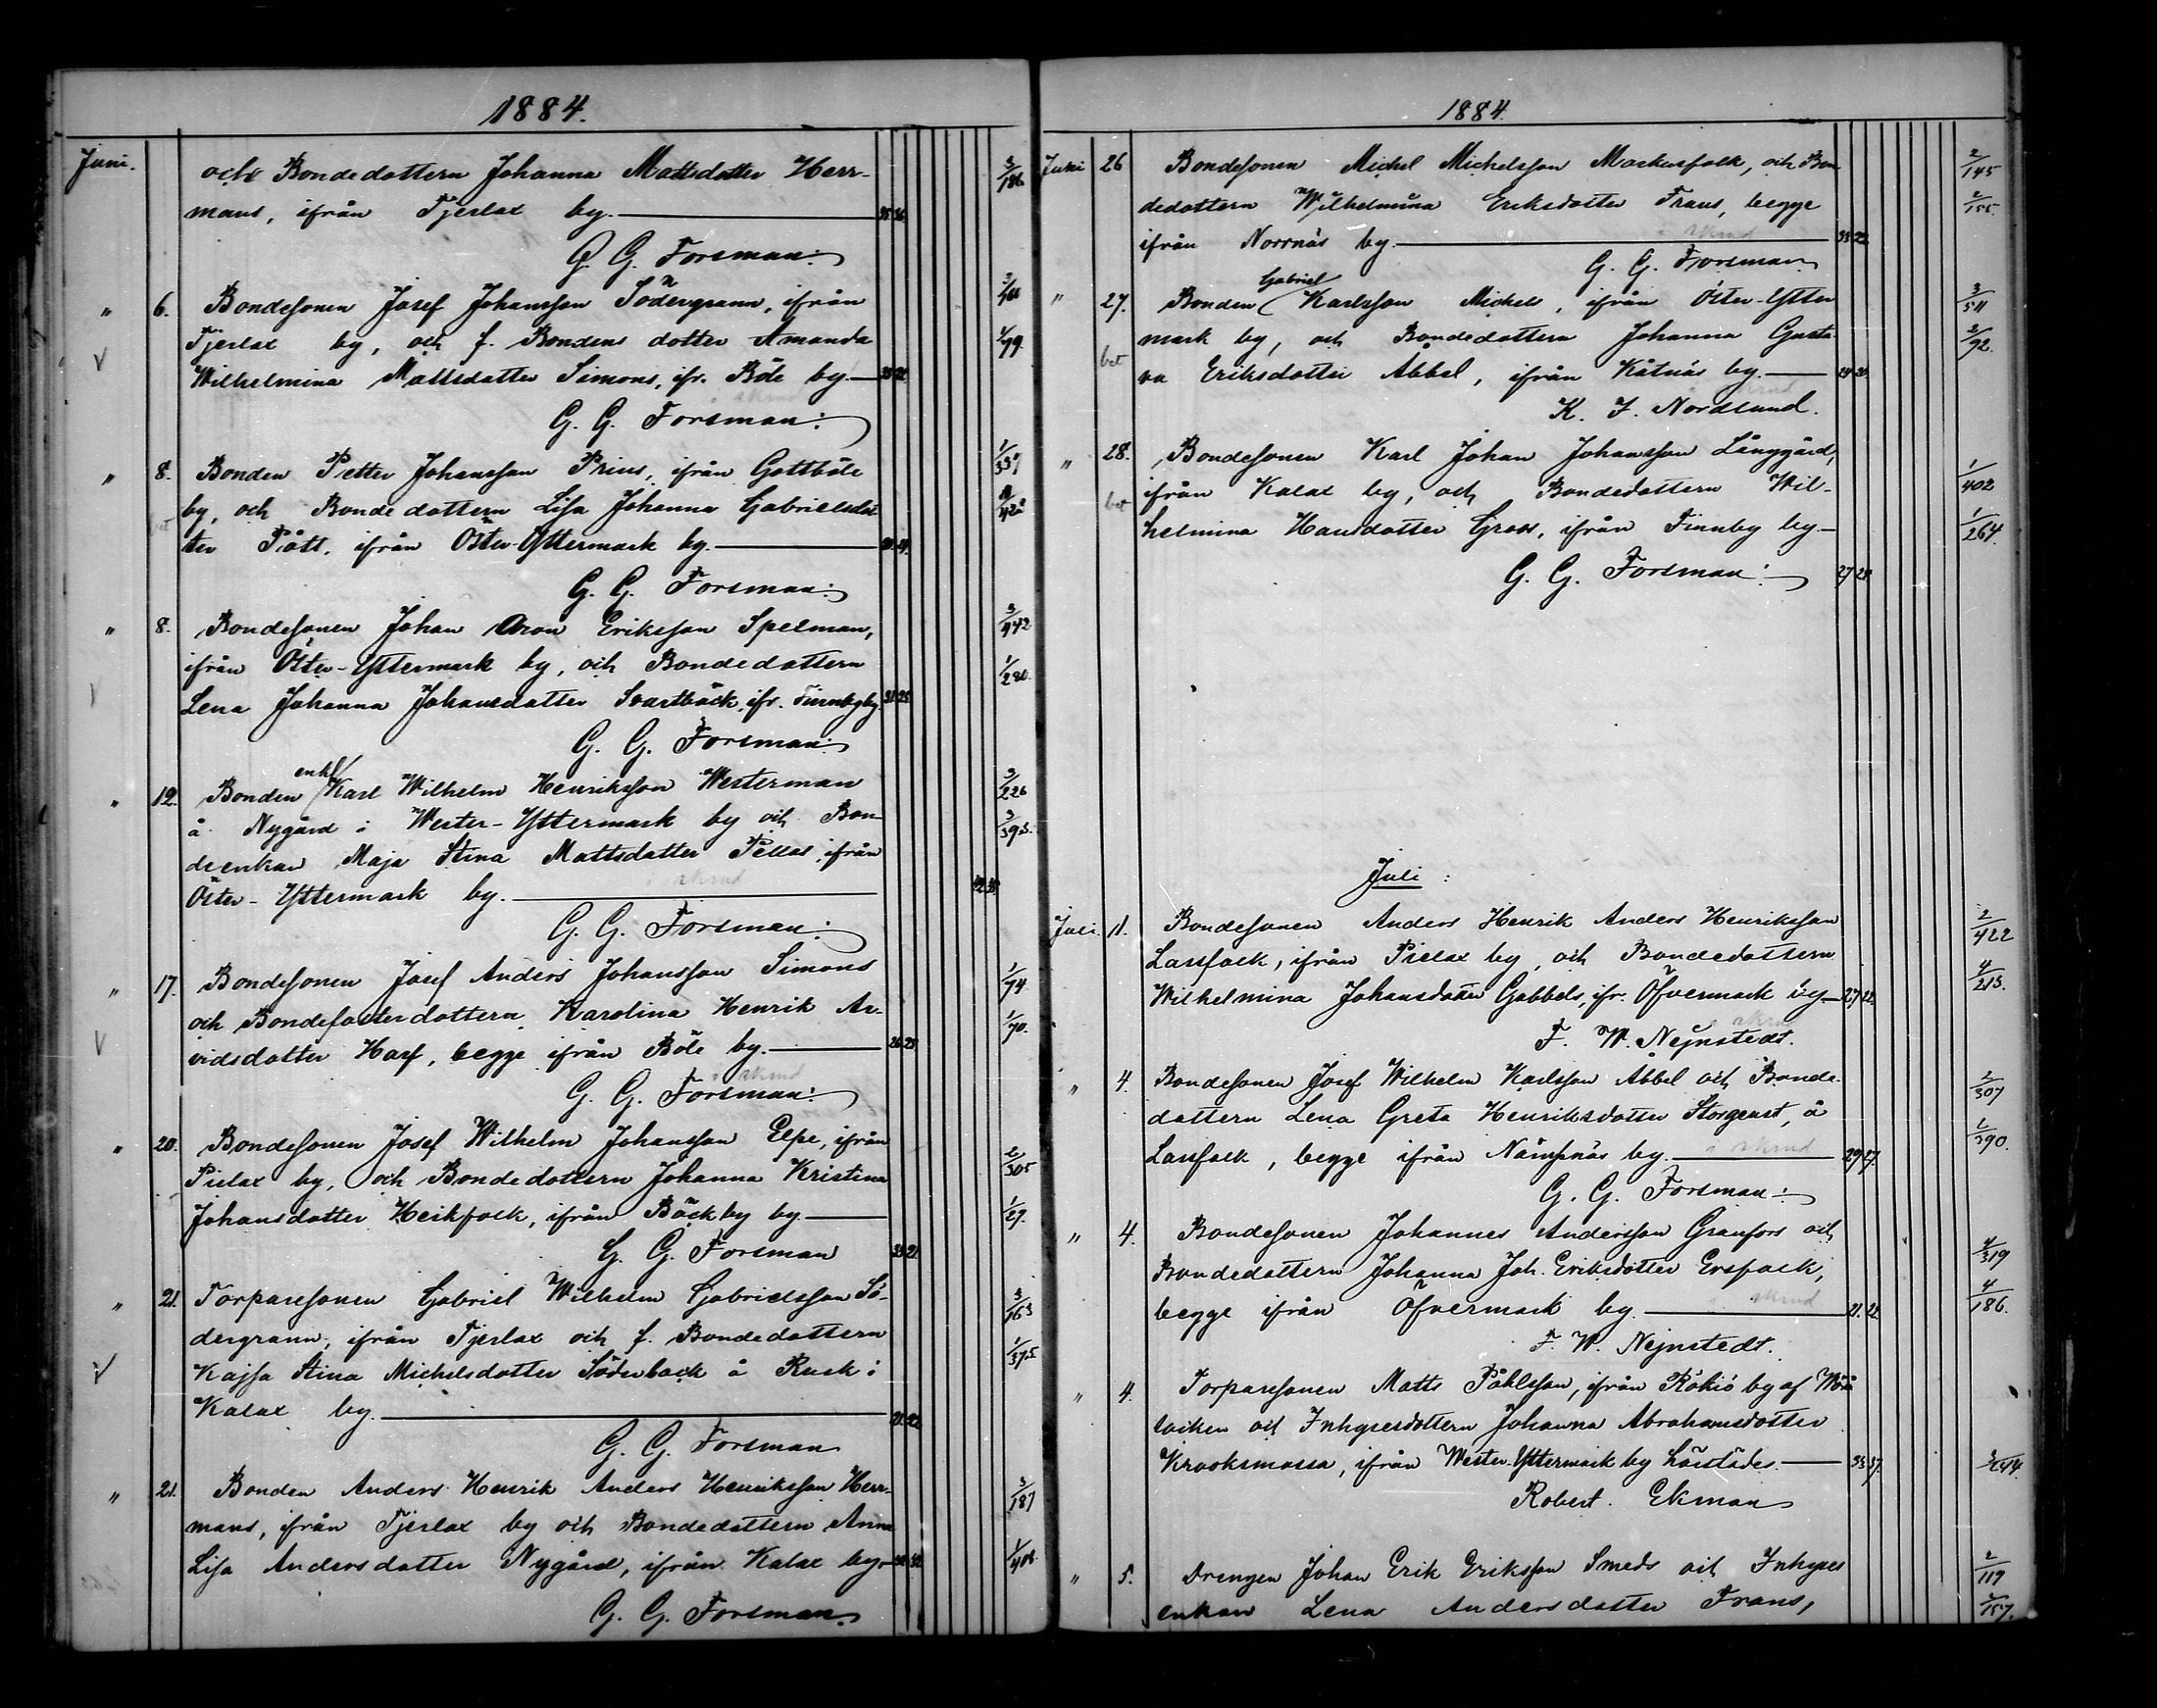 1884.
Juni. och Bondedottern Johanna Mattsdotter Herr- 3/186
mans, ifrån Tjerlax by.
G. G. Forsman.
" 6. Bondesonen Josef Johansson Södergrann, ifrån
Tjerlax by, och f. Bondens dotter Amanda 1/79.
Wilhelmina Mattsdotter Simons, ifr. Böle by.
G. G. Forsman.
" 8. Bonden Petter Johansson Prins, ifrån Gottböle
by, och Bondedottern Lisa Johanna Gabrielsdot
ter Pått, ifrån Öster-Yttermark by.
G. G. Forsman.
" 8. Bondesonen Johan Aron Eriksson Spelman, 3/442
ifrån Öster-Yttermark by, och Bondedottern 1/280.
Lena Johanna Johansdotter Svartbäck, ifr. Finnby by. 31 25
G. G. Forsman.
enkl
" 12. Bonden Karl Wilhelm Henriksson Westerman 3/226
å Nygård i Wester-Yttermark by och Bon- 3/393.
deenkan Maja Stina Mattsdotter Pellas, ifrån
Öster-Yttermark by.
G. G. Forsman.
" 17. Bondesonen Josef Anders Johansson Simons 1/74
och Bondefosterdottern Karolina Henrik Ar- 1/70.
vidsdotter Harf, begge ifrån Böle by. 26 23
G. G. Forsman.
" 20. Bondesonen Josef Wilhelm Johansson Elpe, ifrån
Pielax by, och Bondedottern Johanna Kristina 2/305
Johansdotter Heikfolk, ifrån Bäckby by 1/29.
G. G. Forsman 33 21.
" 21. Torparesonen Gabriel Wilhelm Gabrielsson Sö- 3/163
dergrann, ifrån Tjerlax och f. Bondedottern
Kajsa Stina Michelsdotter Söderback å Rusk i 1/375
Kalax by. 21 22
G. G. Forsman
" 21. Bonden Anders Henrik Anders Henriksson Herr- 3/187
mans, ifrån Tjerlax by och Bondedottern Anna
Lisa Andersdotter Nygård, ifrån Kalax by. 1/408
G. G. Forsman.
1884.
Juni 26 Bondesonen Michel Michelsson Markusfolk, och Bon 2/145
dedottern Wilhelmina Eriksdotter Frans, begge 2/155.
ifrån Norrnäs by.
G. G. Forsman
Gabriel
" 27. Bonden Karlsson Michels, ifrån Öster-Ytter 3/511
mark by, och Bondedottern Johanna Gusta- 2/92.
va Eriksdotter Åbbel, ifrån Kåtnäs by.
K. F. Nordlund.
" 28. Bondesonen Karl Johan Johansson Långgård,
ifrån Kalax by, och Bondedottern Wil- 1/402
helmina Hansdotter Gross, ifrån Finnby by. 1/264.
G. G. Forsman. 27 25
Juli:
Juli. 11. Bondesonen Anders Henrik Anders Henriksson 2/422
Lassfolk, ifrån Pielax by, och Bondedottern 4/213.
Wilhelmina Johansdotter Gabbels, ifr. Öfvermark by 27 22
F. W. Nejnstedt.
" 4. Bondesonen Josef Wilhelm Karlsson Åbbel och Bonde- 2/307
dottern Lena Greta Henriksdotter Storgeust, å
Lassfolk, begge ifrån Nämpnäs by. 2/390. 29 27.
G. G. Forsman.
" 4. Bondesonen Johannes Andersson Granfors och 4/319
Bondedottern Johanna Joh. Eriksdotter Ersfolk, 4/186.
begge ifrån Öfvermark by. 21. 22
F. W. Nejnstedt.
" 4. Torparesonen Matts Påhlsson, ifrån Rökiö by af Wörå
socken och Inhysesdottern Johanna Abrahamsdotter
Krooksmossa, ifrån Wester-Yttermark by härstädes.
Robert. Ekman
" 5. Drengen Johan Erik Eriksson Smeds och Inhyses 2/119
enkan Lena Andersdotter Frans, 2/157.